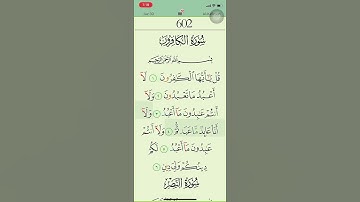 602
سُورَةُ الْكَافِرُونَ
بِسْمِ اللَّهِ الرَّحْمَٰنِ الرَّحِيمِ
قُلْ يَٰٓأَيُّهَا ٱلْكَٰفِرُونَ ١ لَآ
أَعْبُدُ مَا تَعْبُدُونَ ٢ وَلَآ
أَنتُمْ عَٰبِدُونَ مَآ أَعْبُدُ ٣ وَلَآ
أَنَا۠ عَابِدٌ مَّا عَبَدتُّمْ ٤ وَلَآ أَنتُمْ
عَٰبِدُونَ مَآ أَعْبُدُ ٥ لَكُمْ
دِينُكُمْ وَلِىَ دِينِ ٦
سُورَةُ النَّصْرِ